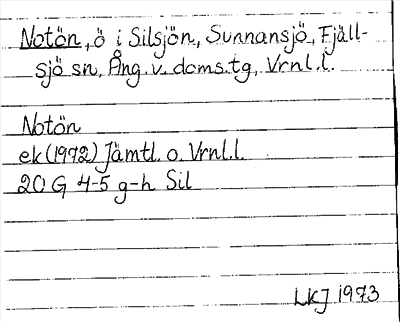 Notön, ö i Silsjön, Sunnansjö, Fjäll-
sjö sn, Ång. v. doms.tg, Vrnl.l.
Notön
ek (1972) Jämtl. o. Vrnl.l.
20 G 4-5 g-h Sil
LKJ 1973